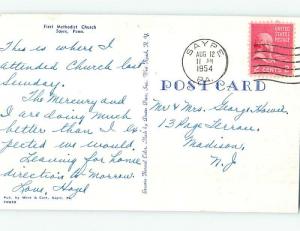 First Methodist Church
Sayre, Penn.
This is where I
attended Church last
Sunday.
The Mercury and
I are doing much
better than I ex-
pected we would.
Leaving for home
direction to-morrow
Love, Hazel
Pub. by Mink & Card, Sayre, Pa.
SAYRE
AUG 12
11 AM
1954
PA.
2 CENTS 2
POST CARD
Mr & Mrs. George Howell
13 Page Terrace,
Madison,
N.J